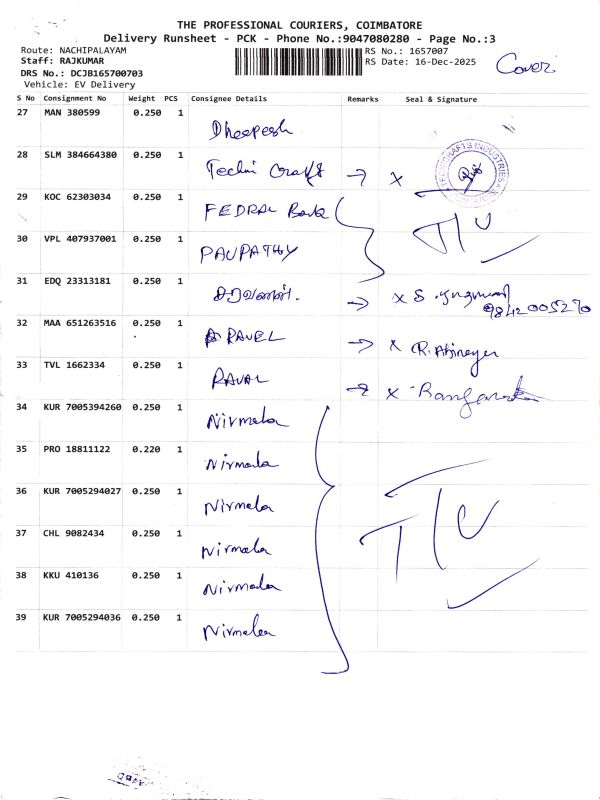 THE PROFESSIONAL COURIERS, COIMBATORE
Delivery Runsheet - PCK - Phone No.:9047080280 - Page No.:3
Route: NACHIPALAYAM RS No.: 1657007
Staff: RAJKUMAR RS Date: 16-Dec-2025
DRS No.: DCJB165700703
Vehicle: EV Delivery
Cover
S No Consignment No Weight PCS Consignee Details Remarks Seal & Signature
27 MAN 380599 0.250 1 Dheepesh
28 SLM 384664380 0.250 1 Techni Craft → x
29 KOC 62303034 0.250 1 FEDRAL Bank
30 VPL 407937001 0.250 1 PAUPATHY
T/C
31 EDQ 23313181 0.250 1 சரவணன். → x S.
9842005270
32 MAA 651263516 0.250 1 RAVEL → x R.
33 TVL 1662334 0.250 1 RAVAL → x
34 KUR 7005394260 0.250 1 Nirmala
35 PRO 18811122 0.220 1 Nirmala
36 KUR 7005294027 0.250 1 Nirmala
37 CHL 9082434 0.250 1 Nirmala
38 KKU 410136 0.250 1 Nirmala
39 KUR 7005294036 0.250 1 Nirmala
T/C